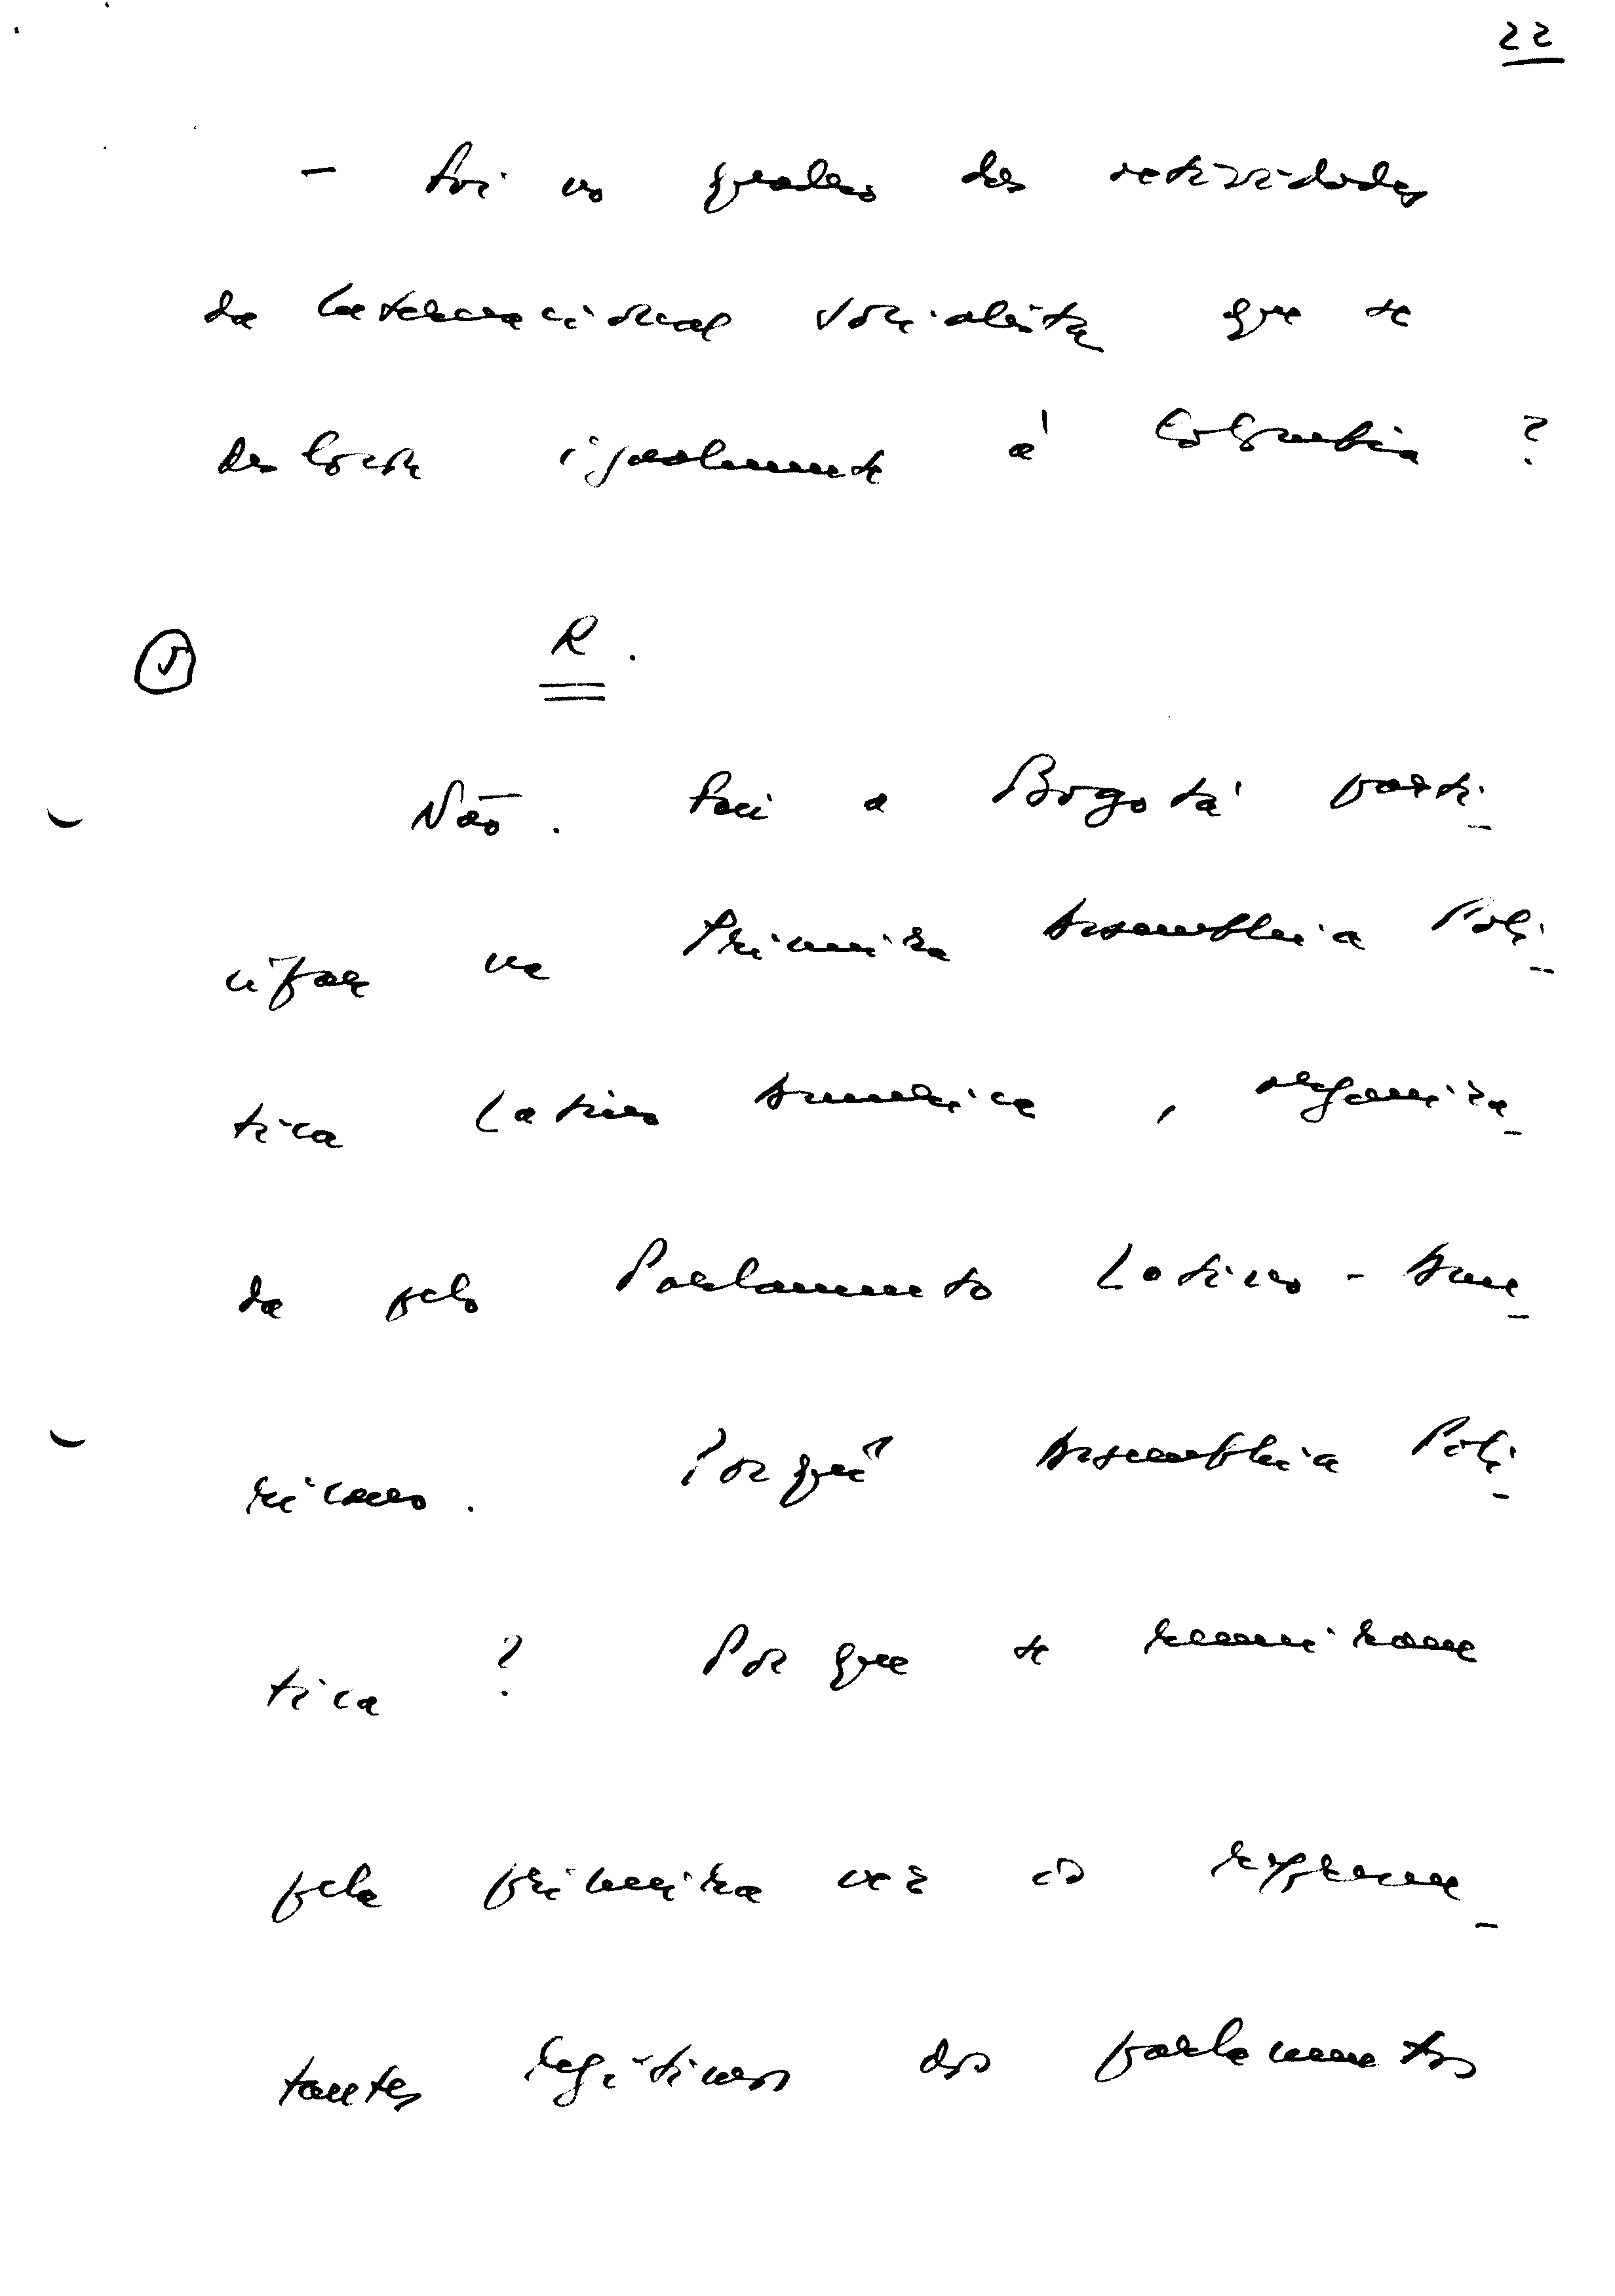 22
- Foi no quadro das actividades
da Internacional Socialista que se
deslocou igualmente à Colômbia ?
5 R.
Não. Fui a Bogotá parti-
cipar na Primeira Assembleia Polí-
tica Latino América, organiza-
da pelo Parlamento Latino-Ame-
ricano. Porquê Assembleia Polí-
tica ? Porque se reuniram
pela primeira vez os represen-
tantes legítimos dos parlamentos